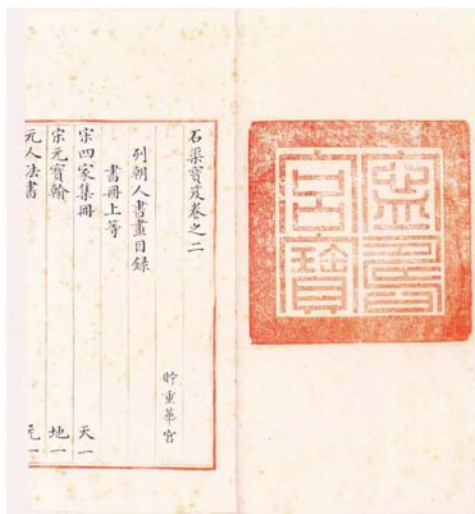 寧壽
宮寶
石渠寶笈卷之二
貯重華宮
列朝人書畫目録
書冊上等
宋四家集冊 天一
宋元寶翰 地一
元人法書 元一